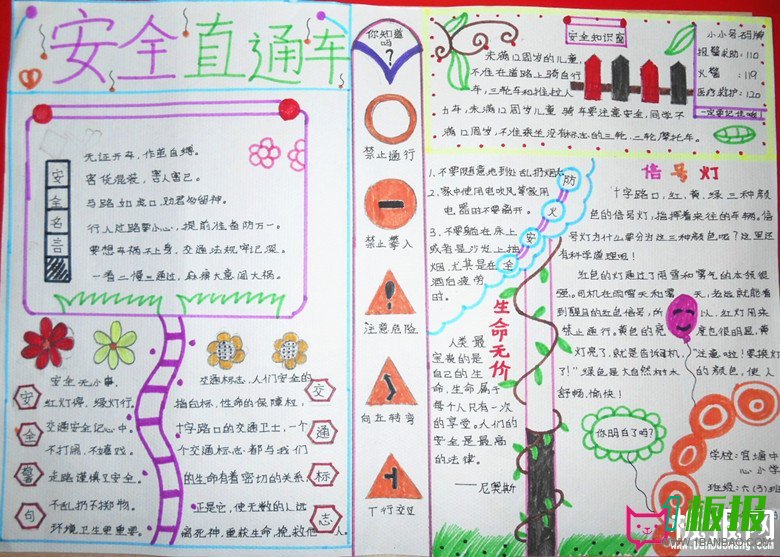 安全直通车
安全名言
无证开车，作茧自缚。
客货混装，害人害己。
与路如虎口，劝君须留神。
行人过路要小心，提前准备防万一。
要想车祸不上身，交通法规牢记深。
一看二慢三通过，麻痹大意闯大祸。
安全警句
安全无小事，
红灯停，绿灯行。
交通安全记心中。
不打闹，不嬉戏。
走路谨慎又安全。
不乱扔不掷物。
环境卫生更重要。
交通标志
交通标志，人们安全的
指向标，性命的保障杖，
十字路口的交通卫士，一个
个交通标志都与我们
的生命有着密切的关系，
正是它，使无数的人远
离死神，重获生命，挽救他人。
你知道
吗？
禁止通行
禁止攀入
注意危险
向左转弯
丁行交叉
安全知识窗
未满12周岁的儿童，
不准在道路上骑自行
车，三轮车和推拉人
力车，未满12周岁儿童骑车要注意安全，同学不
满12周岁，不准乘坐没有标志的三轮，二轮摩托车。
小小号码牌
报警求助：110
火警：119
医疗救护：120
一定要记住哦！
防火安全
1.不要随意地到处乱扔烟头
2.家中使用电吹风等家用
电器时不要离开。
3.不要躺在床上
或者是沙发上抽
烟，尤其是在
酒后疲劳
时。
生命无价
人类最
宝贵的是
自己的生
命，生命属于
每个人只有一次
的享受。人们的
安全是最高
的法律。
——尼奥斯
信号灯
十字路口，红、黄、绿三种颜
色的信号灯，指挥着来往的车辆。信
号灯为什么要分为这三种颜色呢？这里还
有科学道理呢！
红色的灯通过了雨雪和雾气的本领很
强。司机在雨雪天和雾天，老远就能看
到醒目的红色信号，所以，红灯用来
禁止通行。黄色的亮度也很明显，黄
灯亮了，就是告诉司机，“注意啦！要换灯
了！”绿色是大自然树木的颜色，使人
舒畅，愉快！
你明白了吗？
学校：宫塘中
心小学
班级：六(3)班
板报
WWW.1BANBAO.COM